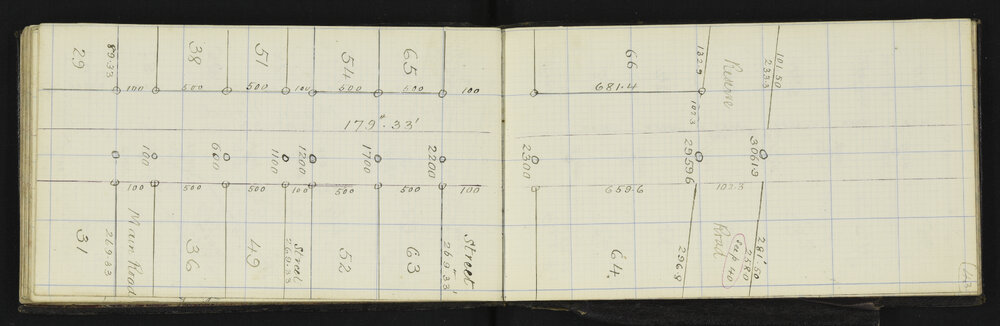 29
89.33
38
51
54
65
66
132.9
Reserve
101.50
2333
100
500
500
100
500
500
100
681.4
102.3
179°.33'
100
600
1100
1200
1700
2200
2300
2959.6
3061.3
100
500
500
100
500
500
100
659.6
102.3
31
269.33
Main Road
36
49
Street
269.33
52
63
Street
269°.33'
64.
2968
Road
281°.50
2580